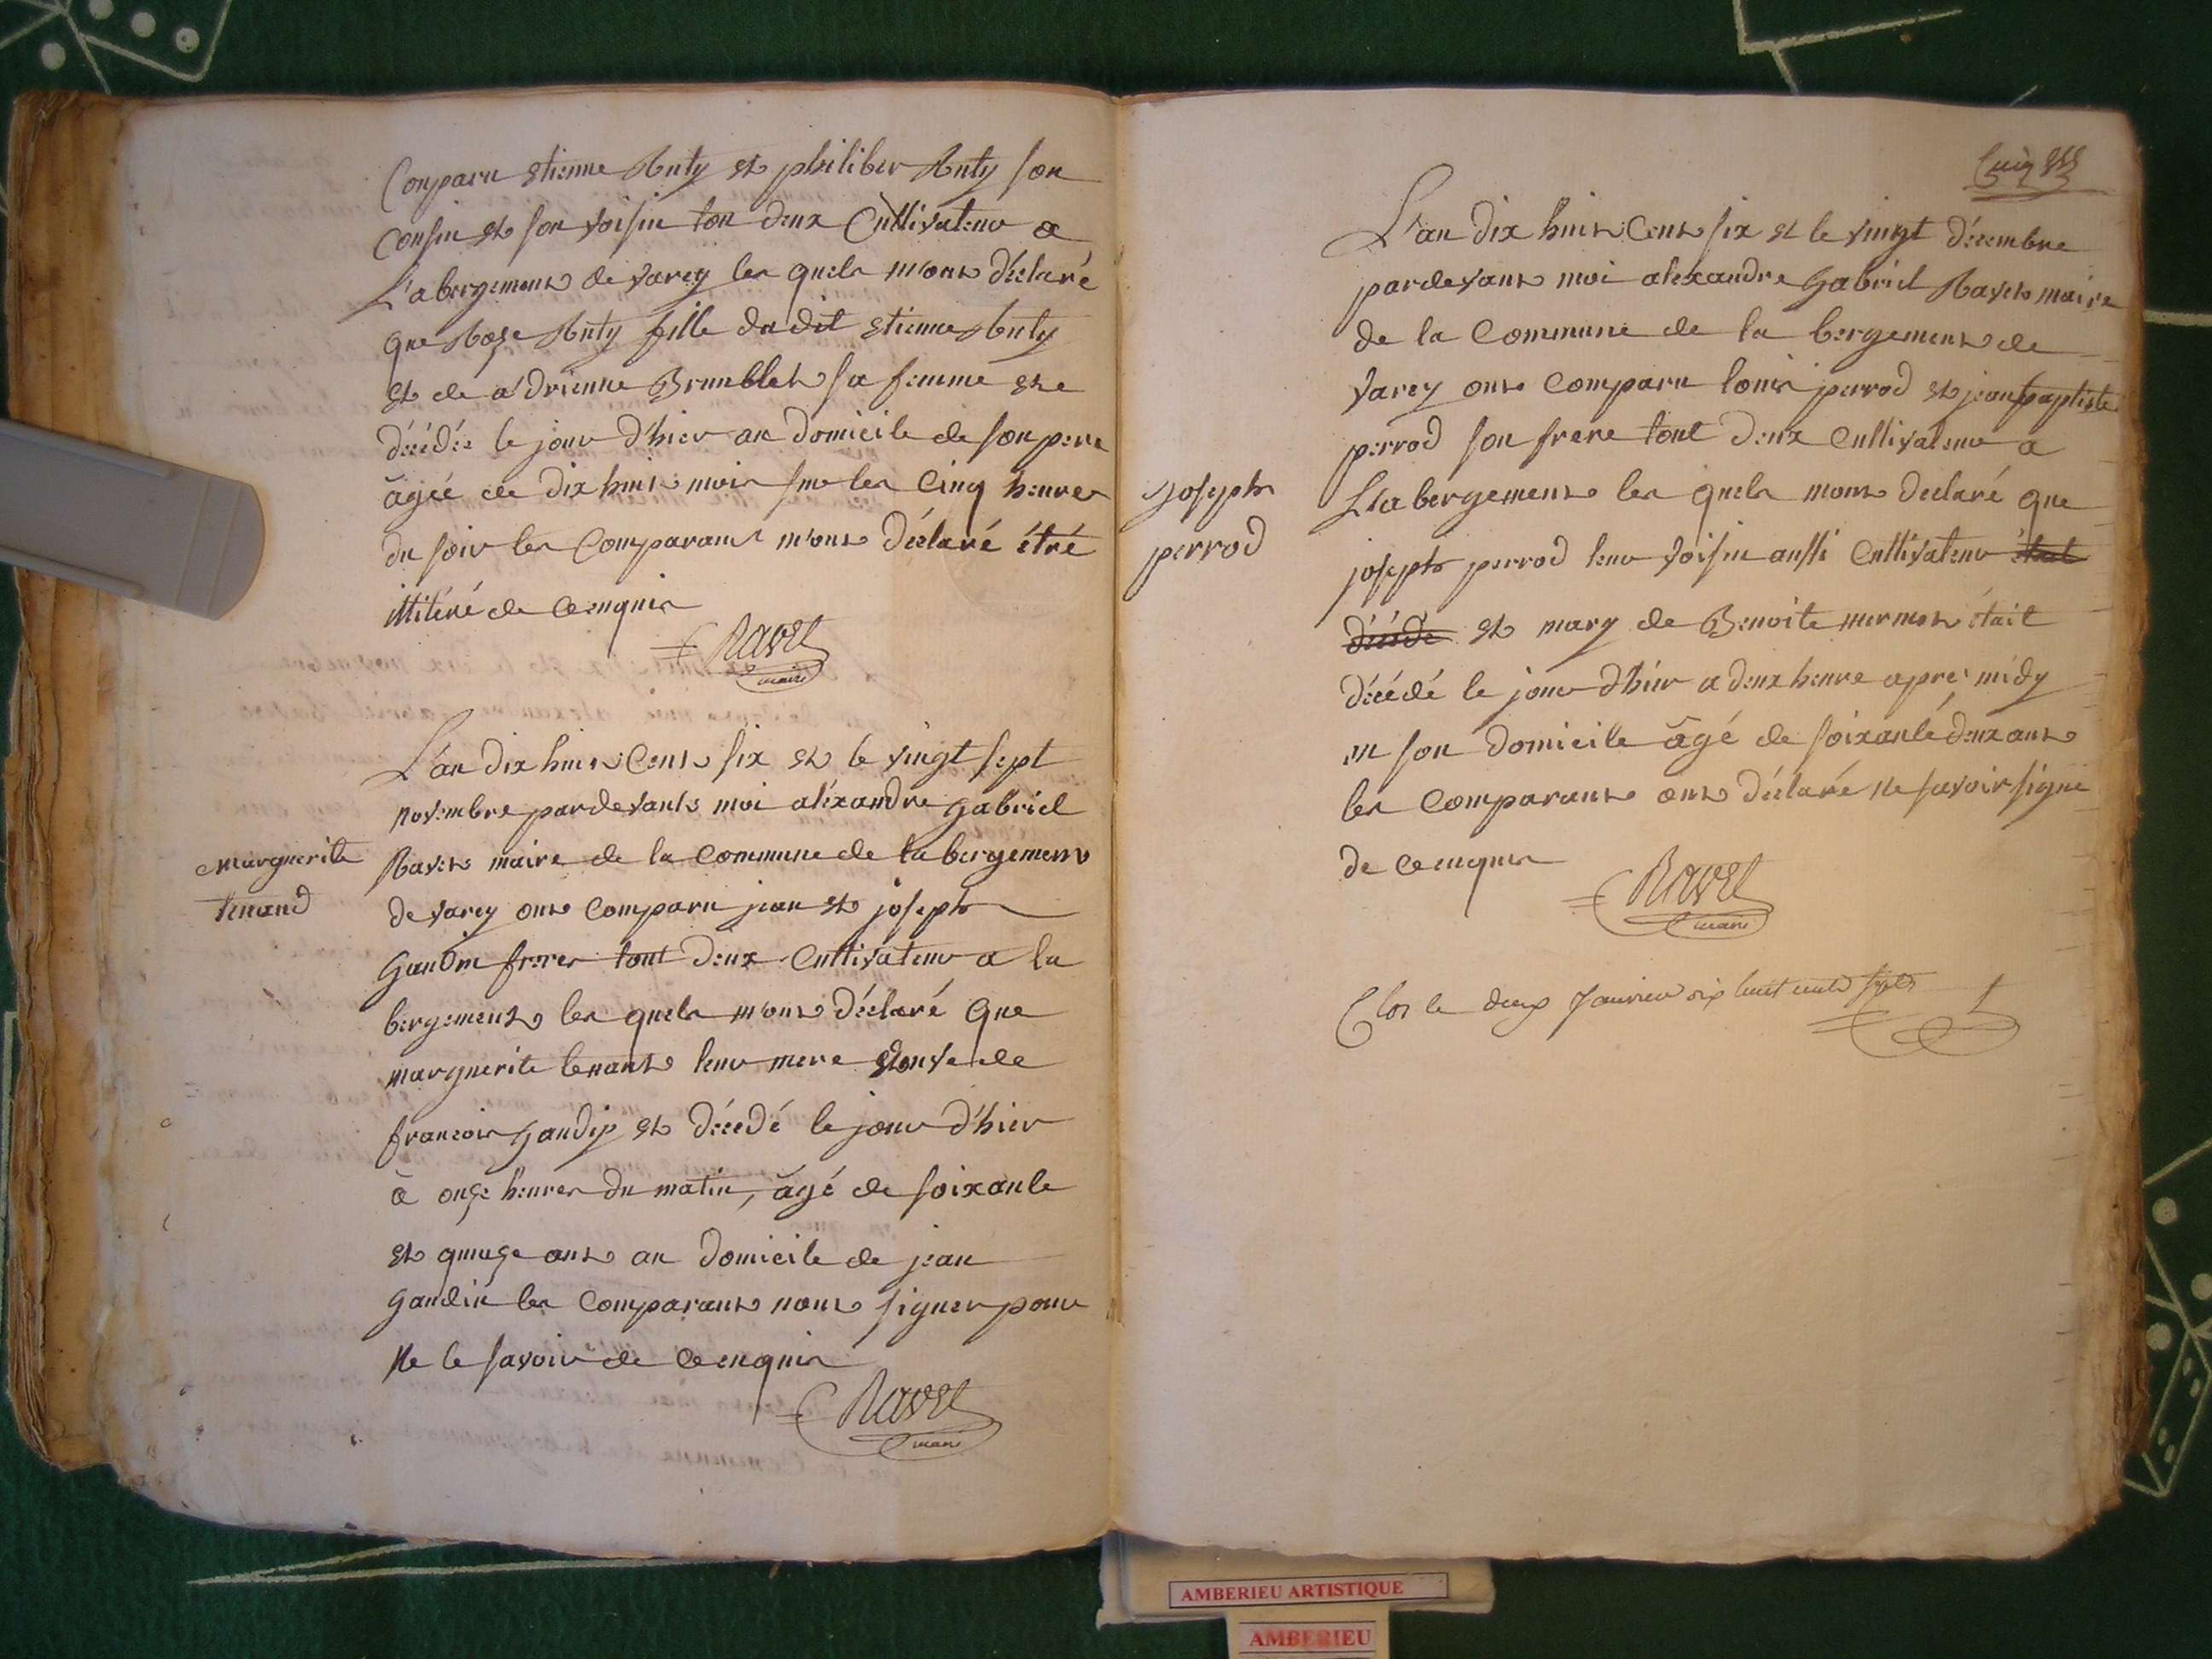 Comparu etienne Ruty et philiber Ruty son
cousin et son voisin tou deux Cultivateur a
L'abergement de varey les quels m'ont déclaré
que Roze Ruty fille du dit etienne Ruty
et de a'drienne Brunblet sa femme est
décédée le jour d'hier au domicile de son pere
âgéé de dix huit mois sur les Cinq heures
du soir les Comparant m'ont déclaré étré
illitéré de cenquis
Ravet
maire
L'an dix huit Cent six et le vingt sept
novembre pardevants moi aléxandre gabriel
Ravet maire de la Commune de la bergement
de varey ont Comparu jean et joseph
Gaudin freres tout deux Cultivateur a la
bergement les quels m'ont déclaré que
marguerite tenant leur mere veuve de
francois gaudin et décédé le jour d'hier
à onze heures du matin, âgé de soixante
et quinze ant au domicile de jean
gaudin les Comparant n'ont signer pour
Ne le savoir de cenquis
Ravet
maire
Marguerite
tenand
Cinq
L'an dix huit Cent six et le vingt décembre
pardevant moi alexandre Gabriel Ravet maire
de la Commune de la bergement de
varey ont Comparu louis perrod et jean baptiste
perrod son frere tout deux Cultivateur a
L'abergement les quels m'ont declaré que
joseph perrod leur voisin aussi Cultivateur était
décédé et mary de Benoite mermet était
décédé le jour d'hier a deux heure aprés midy
en son domicile âgé de soixante deux ant
les Comparant ont déclaré ne savoir signé
de cenquis
Ravet
maire
joseph
perrod
Clos le deux Janvier dix huit cent sept
AMBERIEU ARTISTIQUE
AMBERIEU